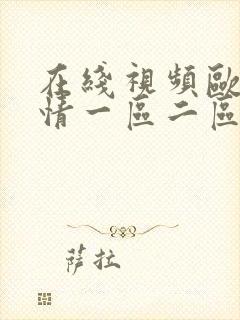 在綫視頻歐
情一區二區
萨拉